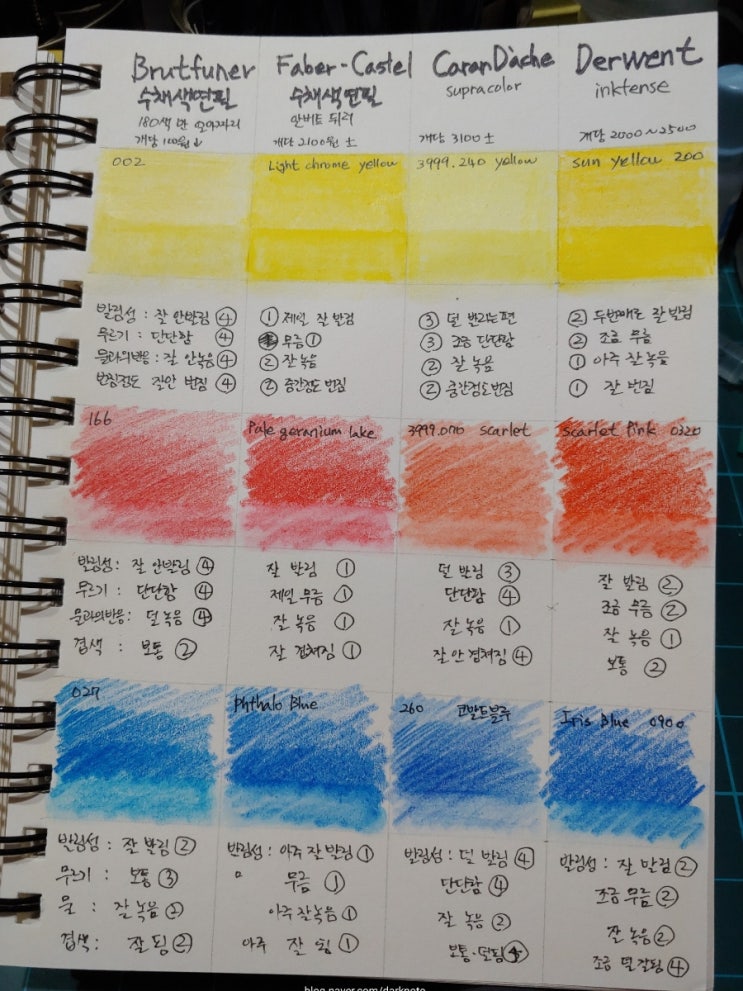 Brutfuner
수채색연필
180색 만
개당
Faber-Castel
수채색연필
알버트 뒤러
개당 2100원 ±
CaranDàche
supracolor
개당 3100 ±
Derwent
inktense
개당 2000~2500
002
Light chrome yellow
3999.240 yellow
sun yellow 200
발림성 : 잘 안발림 ④
무르기 : 단단함 ④
물과의반응 : 잘 안녹음 ④
번짐정도 잘안 번짐 ④
① 제일 잘 발림
무름 ①
② 잘 녹음
② 중간정도 번짐
③ 덜 발리는편
③ 조금 단단함
② 잘 녹음
② 중간정도번짐
② 두번째로 잘 발림
② 조금 무름
① 아주 잘 녹음
① 잘 번짐
166
Pale geranium lake
3999.070 scarlet
scarlet Pink 0320
발림성 : 잘 안발림 ④
무르기 : 단단함 ④
물과의반응 : 덜 녹음 ④
겹색 : 보통 ②
잘 발림 ①
제일 무름 ①
잘 녹음 ①
잘 겹쳐짐 ①
덜 발림 ③
단단함 ④
잘 녹음 ①
잘 안 겹쳐짐 ④
잘 발림 ②
조금 무름 ②
잘 녹음 ①
보통 ②
027
Phthalo Blue
260 코발트블루
Iris Blue 0900
발림성 : 잘 발림 ②
무르기 : 보통 ③
물 : 잘 녹음 ②
겹색 : 잘됨 ②
발림성 : 아주 잘 발림 ①
무름 ①
아주 잘녹음 ①
아주 잘 됨 ①
발림성 : 덜 발림 ④
단단함 ④
잘 녹음 ②
보통·덜됨
발림성 : 잘 발림 ②
조금 무름 ②
잘 녹음 ②
조금 덜 잘됨 ④
blog.naver.com/darknote